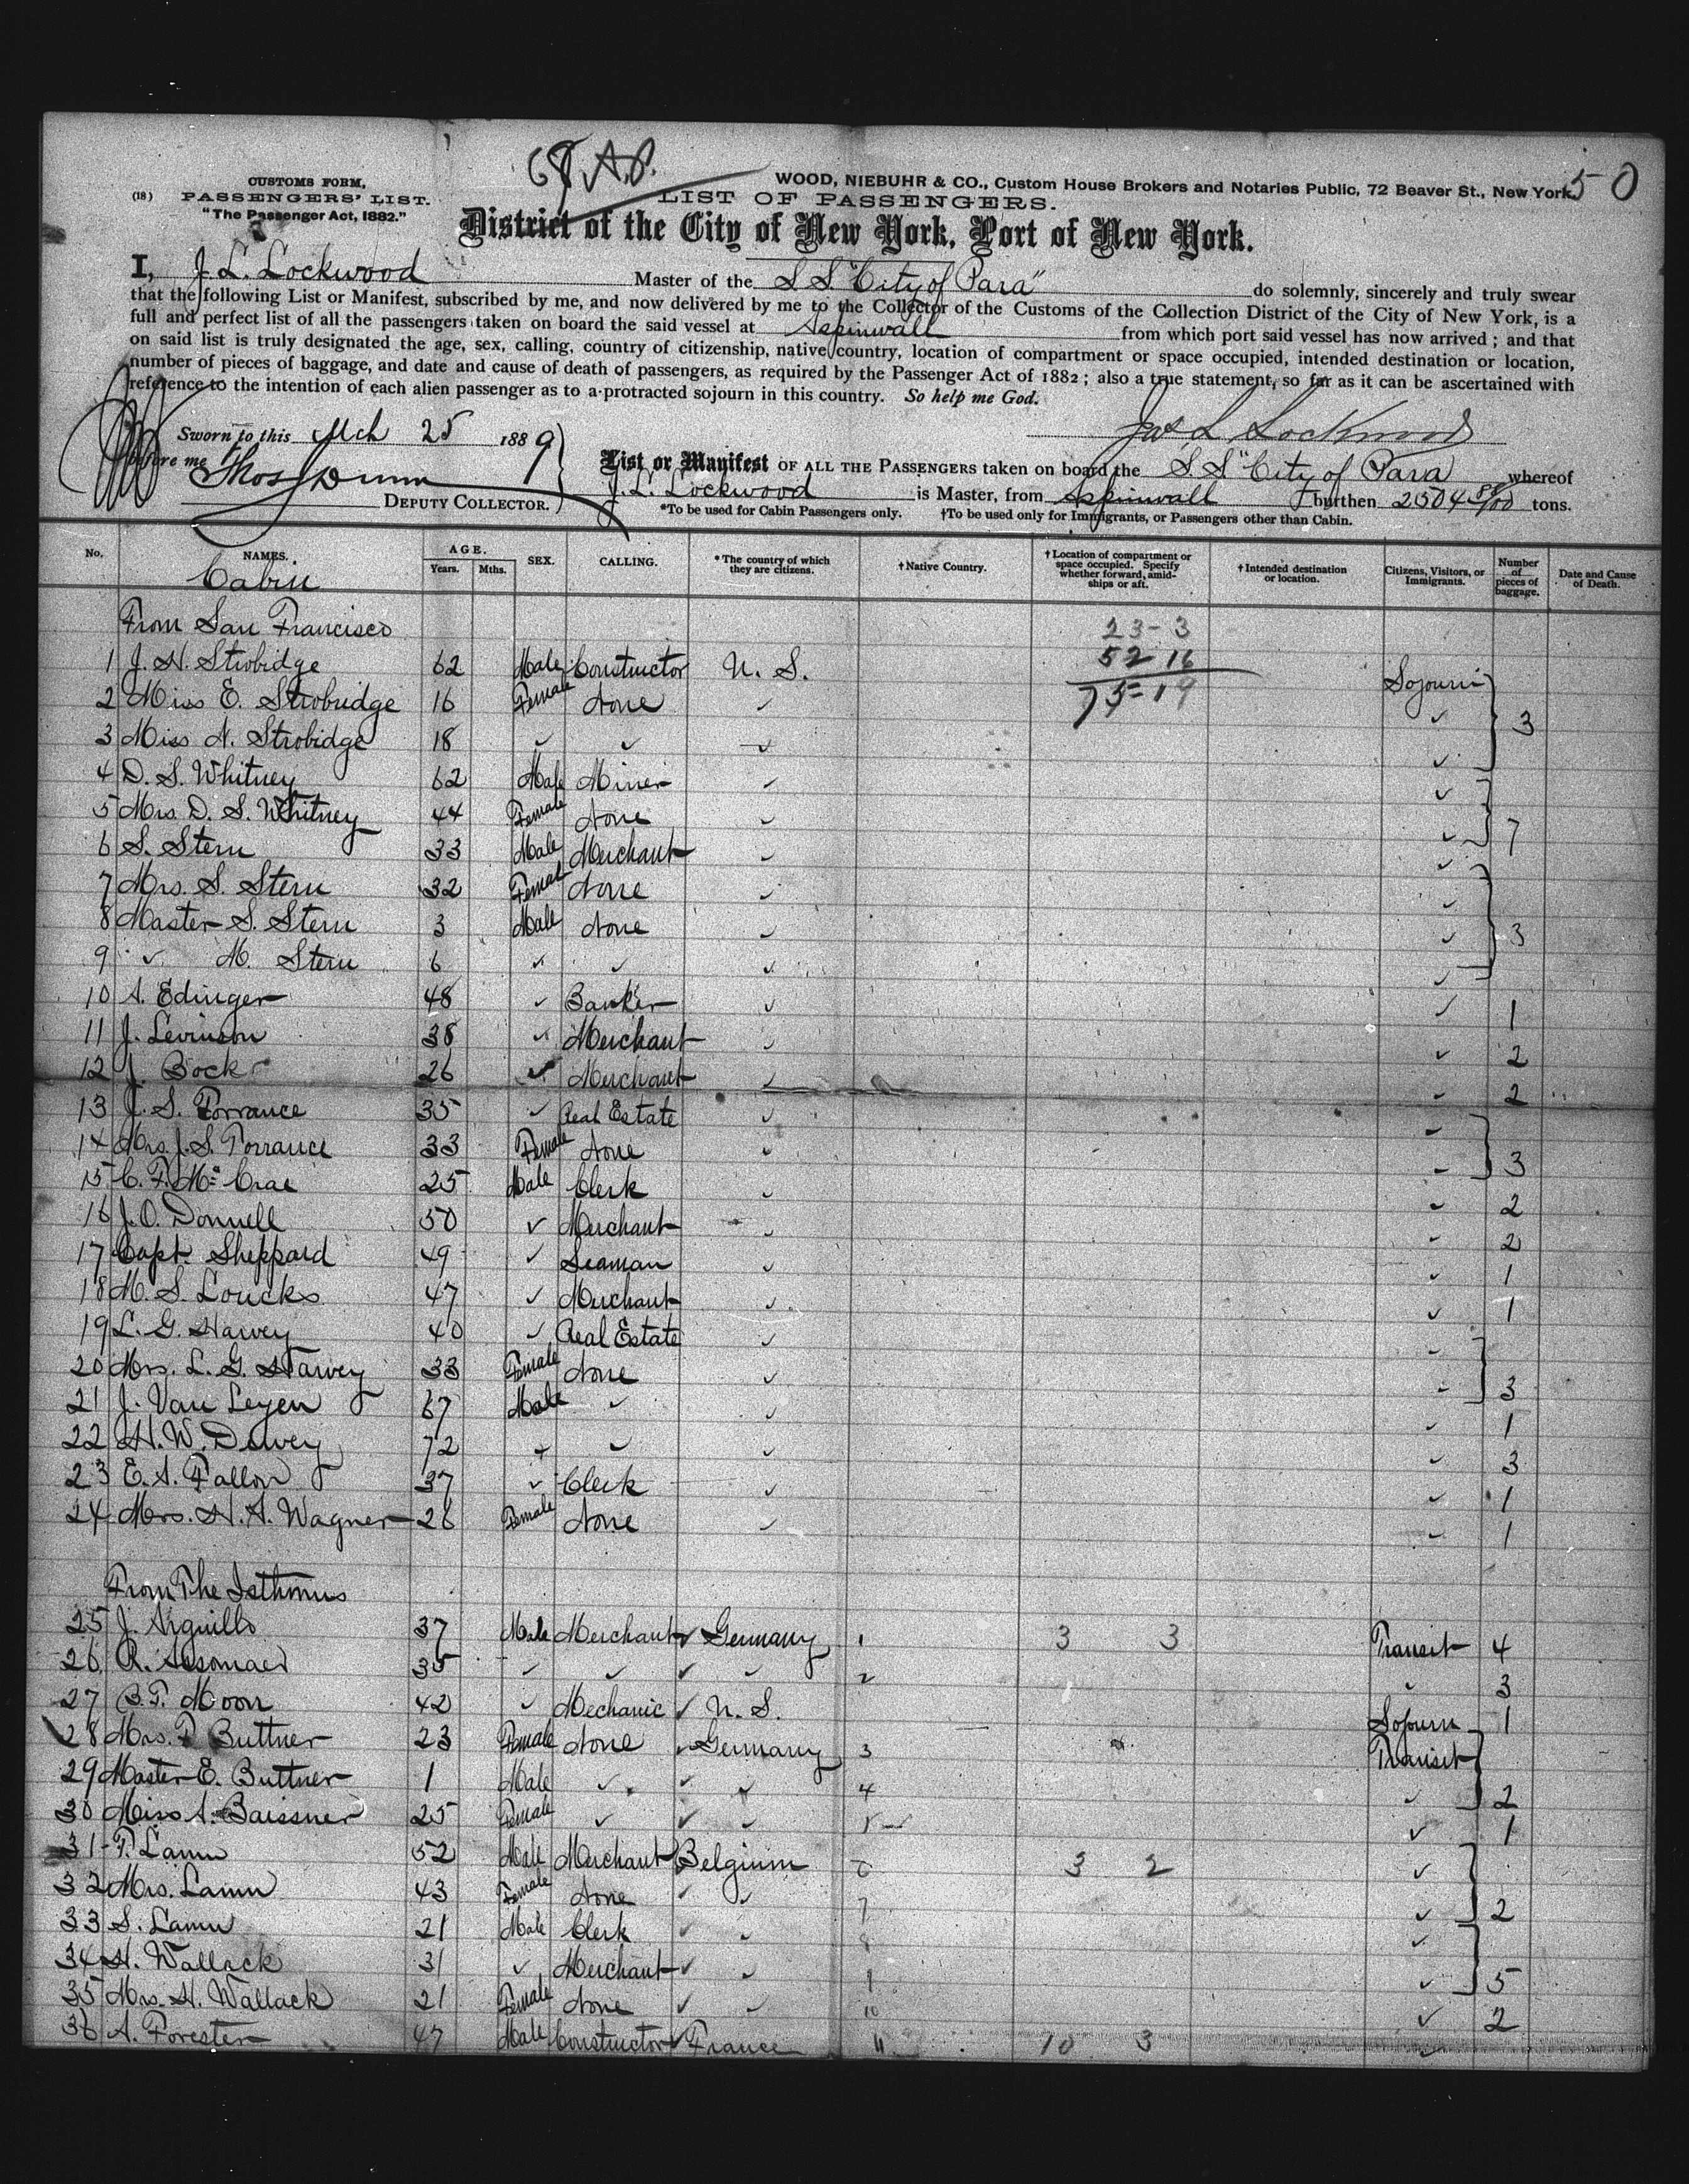 68 A.P.
50
CUSTOMS FORM,
(18) PASSENGERS' LIST.
"The Passenger Act, 1882."
WOOD, NIEBUHR & CO., Custom House Brokers and Notaries Public, 72 Beaver St., New York.
LIST OF PASSENGERS.
District of the City of New York, Port of New York.
I, J. L. Lockwood Master of the S S. "City of Para" do solemnly, sincerely and truly swear
that the following List or Manifest, subscribed by me, and now delivered by me to the Collector of the Customs of the Collection District of the City of New York, is a
full and perfect list of all the passengers taken on board the said vessel at Aspinwall from which port said vessel has now arrived; and that
on said list is truly designated the age, sex, calling, country of citizenship, native country, location of compartment or space occupied, intended destination or location,
number of pieces of baggage, and date and cause of death of passengers, as required by the Passenger Act of 1882; also a true statement, so far as it can be ascertained with
reference to the intention of each alien passenger as to a protracted sojourn in this country. So help me God.
Jas L Lockwood
Sworn to this Mch 25 1889
before me Thos Dunn
DEPUTY COLLECTOR.
List or Manifest OF ALL THE PASSENGERS taken on board the S. S. "City of Para whereof
J. L. Lockwood is Master, from Aspinwall burthen 2504 tons.
*To be used for Cabin Passengers only. †To be used only for Immigrants, or Passengers other than Cabin.
No. NAMES. AGE. Years. Mths. SEX. CALLING. * The country of which they are citizens. † Native Country. † Location of compartment or space occupied. Specify whether forward, amidships or aft. † Intended destination or location. Citizens, Visitors, or Immigrants. Number of pieces of baggage. Date and Cause of Death.
Cabin
From San Francisco 23-3
1 J. H. Strobidge 62 Male Constructor U. S. 52 16 Sojourn
2 Miss E. Strobridge 16 Female None ✓ 75-19 ✓ 3
3 Miss N. Strobidge 18 ✓ ✓ ✓ ✓
4 D. S. Whitney 62 Male Miner ✓ ✓
5 Mrs D. S. Whitney 44 Female None ✓ ✓ 7
6 S. Stern 33 Male Merchant ✓ ✓
7 Mrs. S. Stern 32 Female None ✓ ✓
8 Master S. Stern 3 Male None ✓ ✓ 3
9 ✓ M. Stern 6 ✓ ✓ ✓ ✓
10 A. Edinger 48 ✓ Banker ✓ ✓ 1
11 J. Levinson 38 ✓ Merchant ✓ ✓ 2
12 J. Bock 26 ✓ Merchant ✓ ✓ 2
13 J. S. Torrance 35 ✓ Real Estate ✓ ✓
14 Mrs. J. S. Torrance 33 Female None ✓ ✓ 3
15 C. F. Mc Crae 25 Male Clerk ✓ ✓ 2
16 J. O. Donnell 50 ✓ Merchant ✓ ✓ 2
17 Capt. Sheppard 49 ✓ Seaman ✓ ✓ 1
18 M. S. Loucks 47 ✓ Merchant ✓ ✓ 1
19 L. G. Harvey 40 ✓ Real Estate ✓ ✓
20 Mrs. L. G. Harvey 33 Female None ✓ ✓ 3
21 J. Van Leyen 67 Male ✓ ✓ ✓ 1
22 H. W. Dewey 72 ✓ ✓ ✓ ✓ 3
23 E. A. Fallon 37 ✓ Clerk ✓ ✓ 1
24 Mrs. H. A. Wagner 26 Female None ✓ ✓ 1
From The Isthmus
25 J. Arguillo 37 Male Merchant ✓ Germany 1 3 3 Transit 4
26 R. 35 ✓ ✓ ✓ ✓ 2 ✓ 3
27 B. F. Moon 42 ✓ Mechanic ✓ U. S. Sojourn 1
28 Mrs. Buttner 23 Female None ✓ Germany 3 Transit
29 Master E. Buttner 1 Male ✓ ✓ ✓ 4 ✓ 2
30 Miss A. Baissner 25 Female ✓ ✓ ✓ 5 ✓ 1
31 F. Lamm 52 Male Merchant Belgium 6 3 2 ✓
32 Mrs. Lamm 43 Female None ✓ ✓ 7 ✓ 2
33 S. Lamm 21 Male Clerk ✓ ✓ 8 ✓
34 H. Wallack 31 ✓ Merchant ✓ ✓ 9 ✓ 5
35 Mrs. H. Wallack 21 Female None ✓ ✓ 10 ✓ 2
36 A. Forester 47 Male Constructor ✓ France 11 10 3 ✓